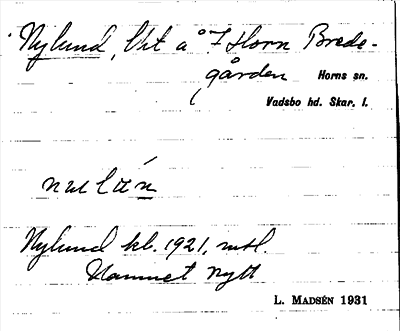 Nylund, lht å 7 Horn Brede-
gården Horns sn.
Vadsbo hd. Skar. l.
Nylund kb. 1921, mtl.
Namnet nytt
L. MADSÉN 1931